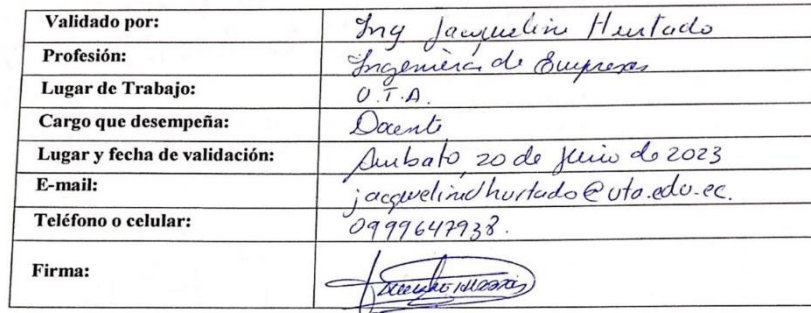 Validado por: Ing Jacqueline Hurtado
Profesión: Ingeniera de Empresas
Lugar de Trabajo: U.T.A.
Cargo que desempeña: Docente
Lugar y fecha de validación: Ambato, 20 de Junio de 2023
E-mail: jacquelinedhurtado@uta.edu.ec.
Teléfono o celular: 0999647938.
Firma: